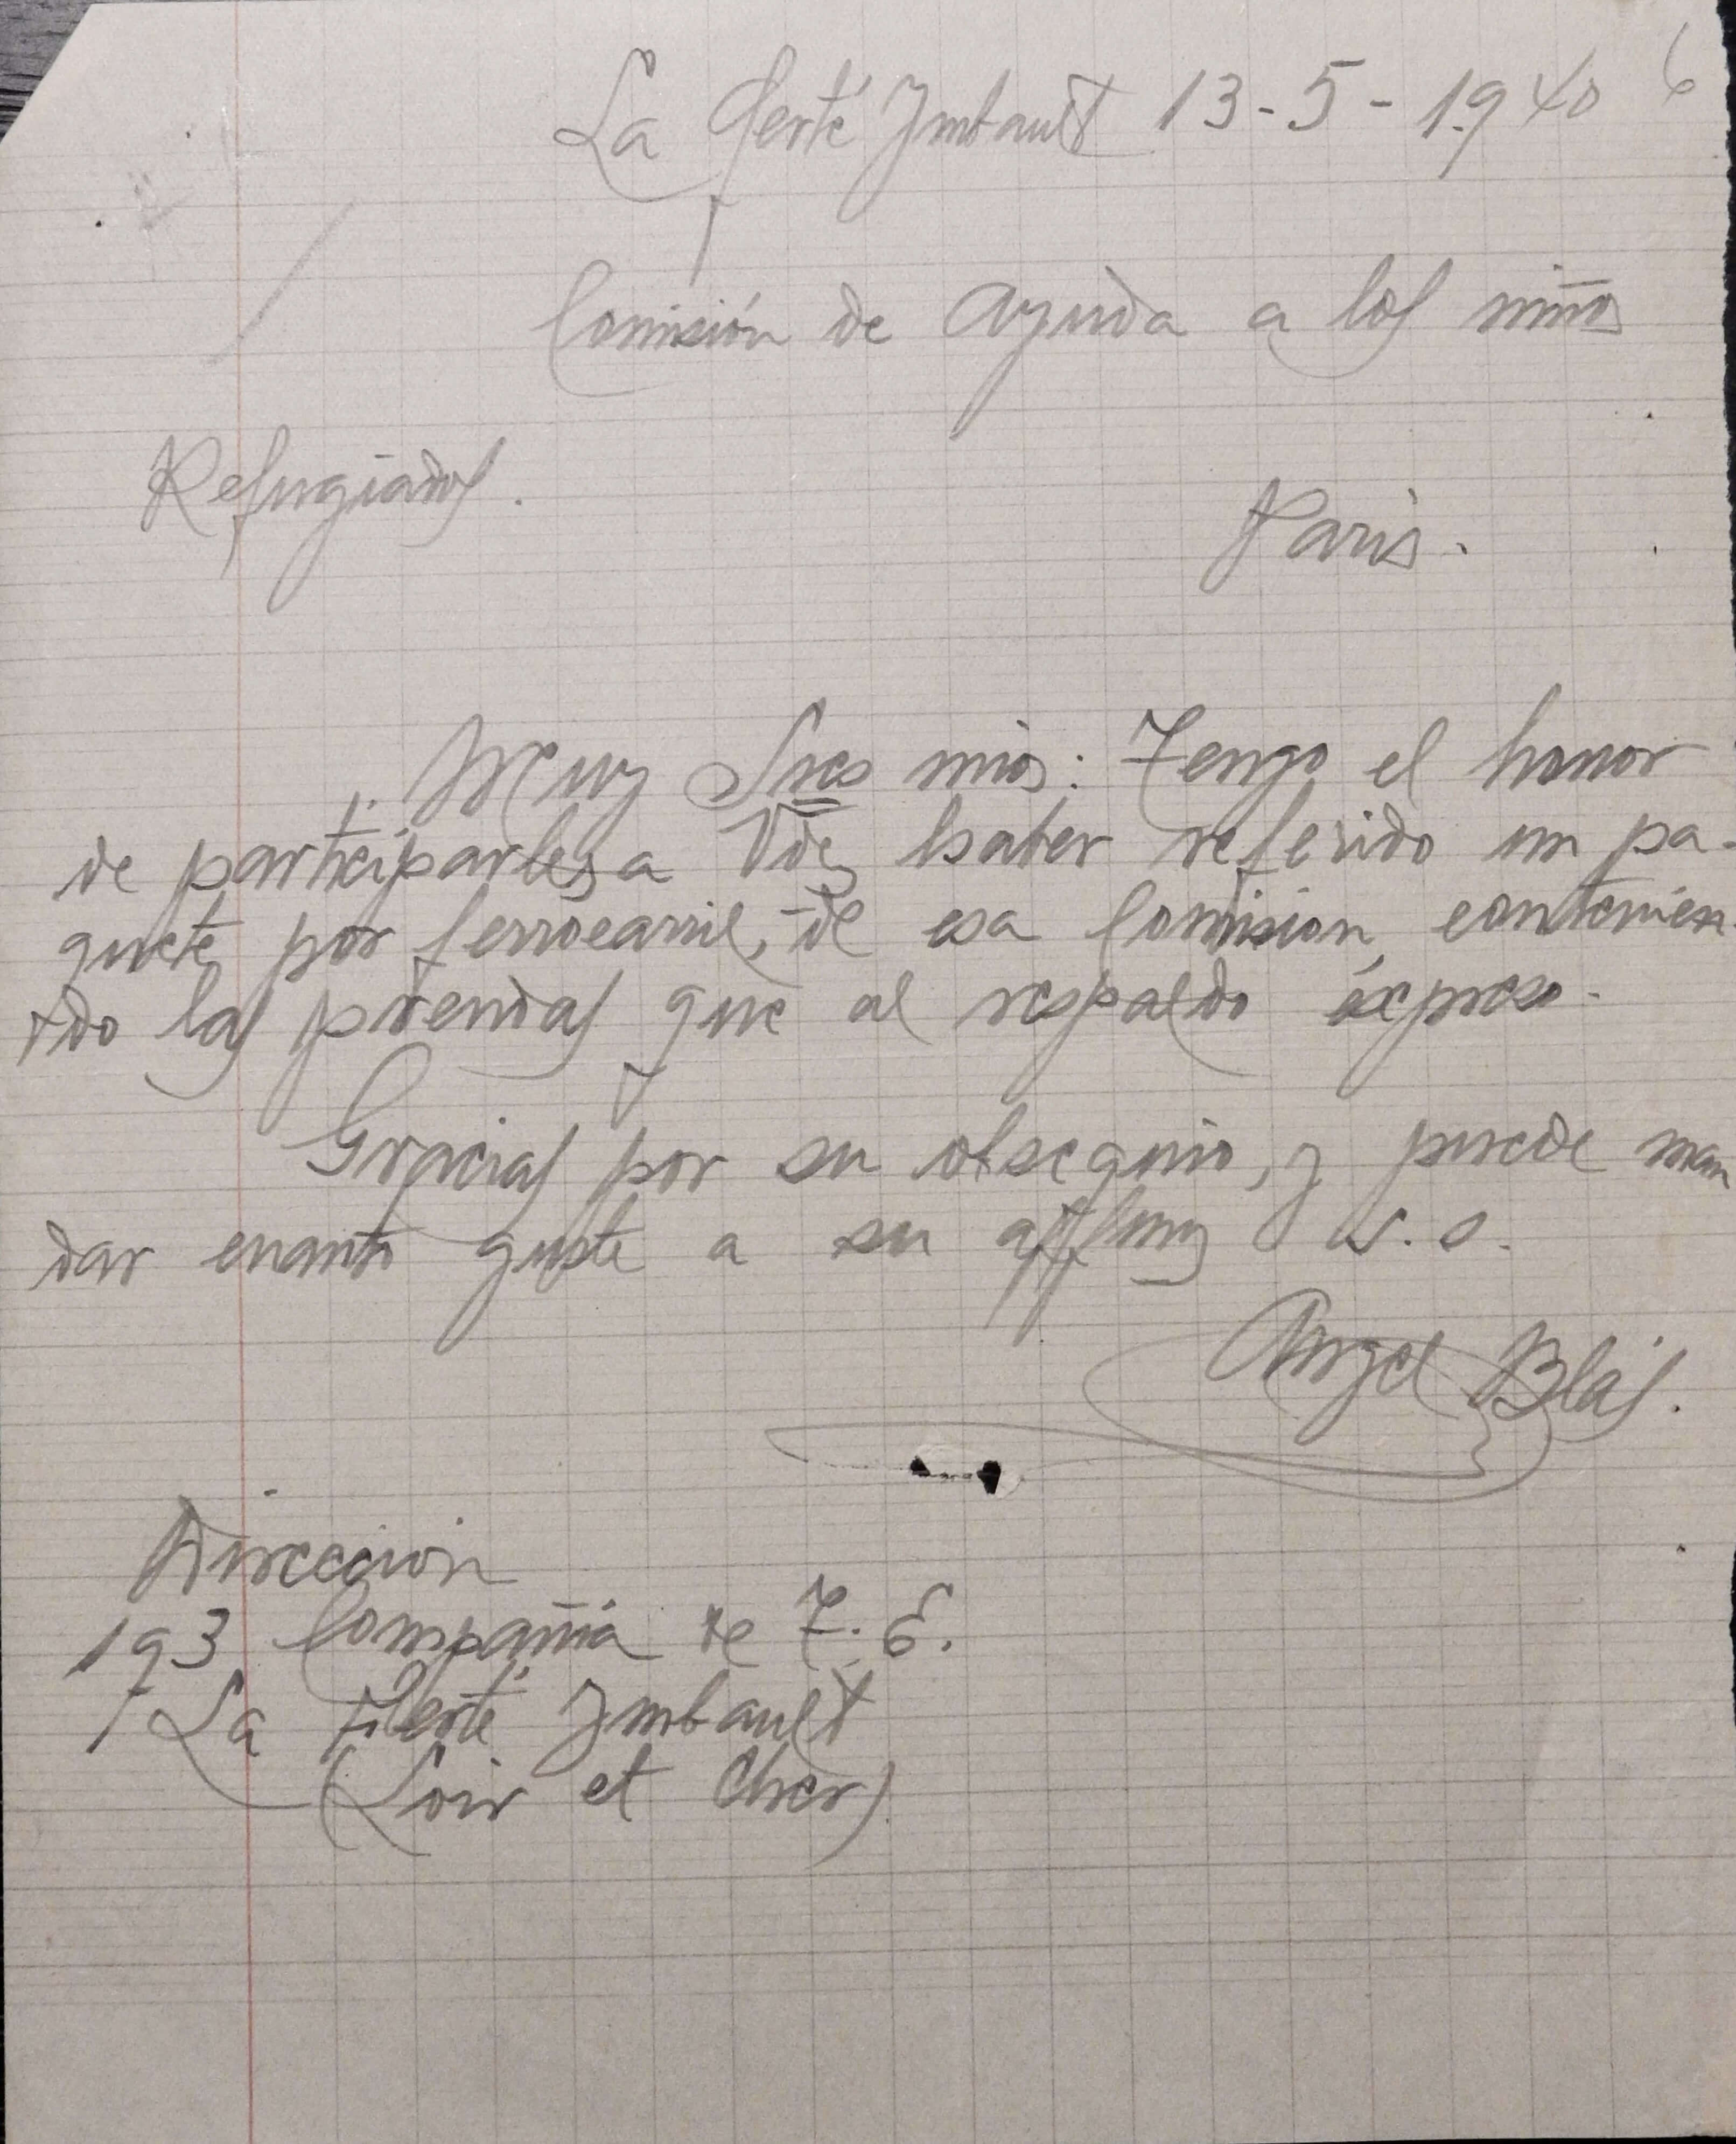 La Ferté Imbault 13-5-1940 6
Comisión de Ayuda a los niños
Refugiados.
Paris.
Muy Sres mios: Tengo el honor
de participarles a Vdes haber referido un pa-
quete por ferrocarril, de esa Comision, contenien-
do las prendas que al respaldo éxpreso.
Gracias por su obsequio, y puede man
dar cuanto guste a su affmo s. s.
Angel Blás.
Direccion
193 Compañia de T. E.
La Ferté Imbault
(Loir et Cher)